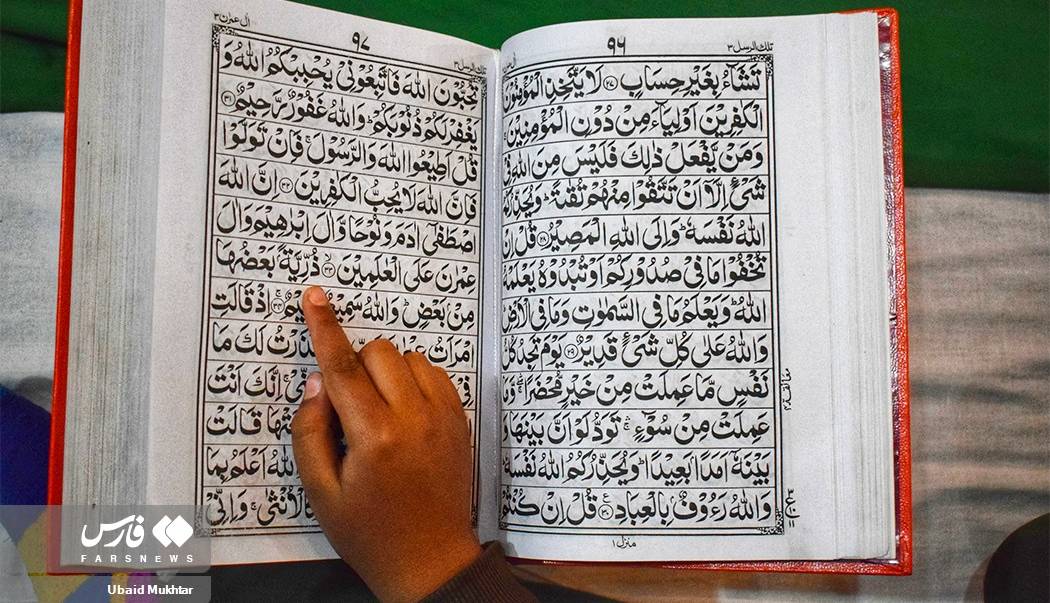 تلك الرسل ٣
٩٦
تَشَآءُ بِغَيْرِ حِسَابٍ ﴿٢٧﴾ لَا يَتَّخِذِ الْمُؤْمِنُوْنَ
الْكٰفِرِيْنَ اَوْلِيَآءَ مِنْ دُوْنِ الْمُؤْمِنِيْنَ
وَمَنْ يَّفْعَلْ ذٰلِكَ فَلَيْسَ مِنَ اللّٰهِ فِيْ
شَيْءٍ اِلَّاۤ اَنْ تَتَّقُوْا مِنْهُمْ تُقٰىةً ؕ وَيُحَذِّرُكُمُ
اللّٰهُ نَفْسَهٗ ؕ وَاِلَى اللّٰهِ الْمَصِيْرُ ﴿٢٨﴾ قُلْ اِنْ
تُخْفُوْا مَا فِيْ صُدُوْرِكُمْ اَوْ تُبْدُوْهُ يَعْلَمْهُ
اللّٰهُ ؕ وَيَعْلَمُ مَا فِي السَّمٰوٰتِ وَمَا فِي الْاَرْضِ
وَاللّٰهُ عَلٰى كُلِّ شَيْءٍ قَدِيْرٌ ﴿٢٩﴾ يَوْمَ تَجِدُ كُلُّ
نَفْسٍ مَّا عَمِلَتْ مِنْ خَيْرٍ مُّحْضَرًا وَّمَا
عَمِلَتْ مِنْ سُوْٓءٍ تَوَدُّ لَوْ اَنَّ بَيْنَهَا وَ
بَيْنَهٗۤ اَمَدًۢا بَعِيْدًا ؕ وَيُحَذِّرُكُمُ اللّٰهُ نَفْسَهٗ
وَاللّٰهُ رَءُوْفٌۢ بِالْعِبَادِ ﴿٣٠﴾ قُلْ اِنْ كُنْتُمْ
منزل ١
اٰل عمرٰن ٣
٩٧
تلك الرسل ٣
تُحِبُّوْنَ اللّٰهَ فَاتَّبِعُوْنِيْ يُحْبِبْكُمُ اللّٰهُ وَ
يَغْفِرْ لَكُمْ ذُنُوْبَكُمْ ؕ وَاللّٰهُ غَفُوْرٌ رَّحِيْمٌ ﴿٣١﴾
قُلْ اَطِيْعُوا اللّٰهَ وَالرَّسُوْلَ ۚ فَاِنْ تَوَلَّوْا
فَاِنَّ اللّٰهَ لَا يُحِبُّ الْكٰفِرِيْنَ ﴿٣٢﴾ اِنَّ اللّٰهَ
اصْطَفٰۤى اٰدَمَ وَنُوْحًا وَّاٰلَ اِبْرٰهِيْمَ وَاٰلَ
عِمْرٰنَ عَلَى الْعٰلَمِيْنَ ﴿٣٣﴾ ذُرِّيَّةًۢ بَعْضُهَا
مِنْۢ بَعْضٍ ؕ وَاللّٰهُ سَمِيْعٌ ﴿٣٤﴾ اِذْ قَالَتِ
امْرَاَتُ لَكَ مَا
اِنَّكَ اَنْتَ
قَالَتْ
اللّٰهُ اَعْلَمُ بِمَا
كَالْاُنْثٰى ۚ وَاِنِّيْ
فارس
FARSNEWS
Ubaid Mukhtar